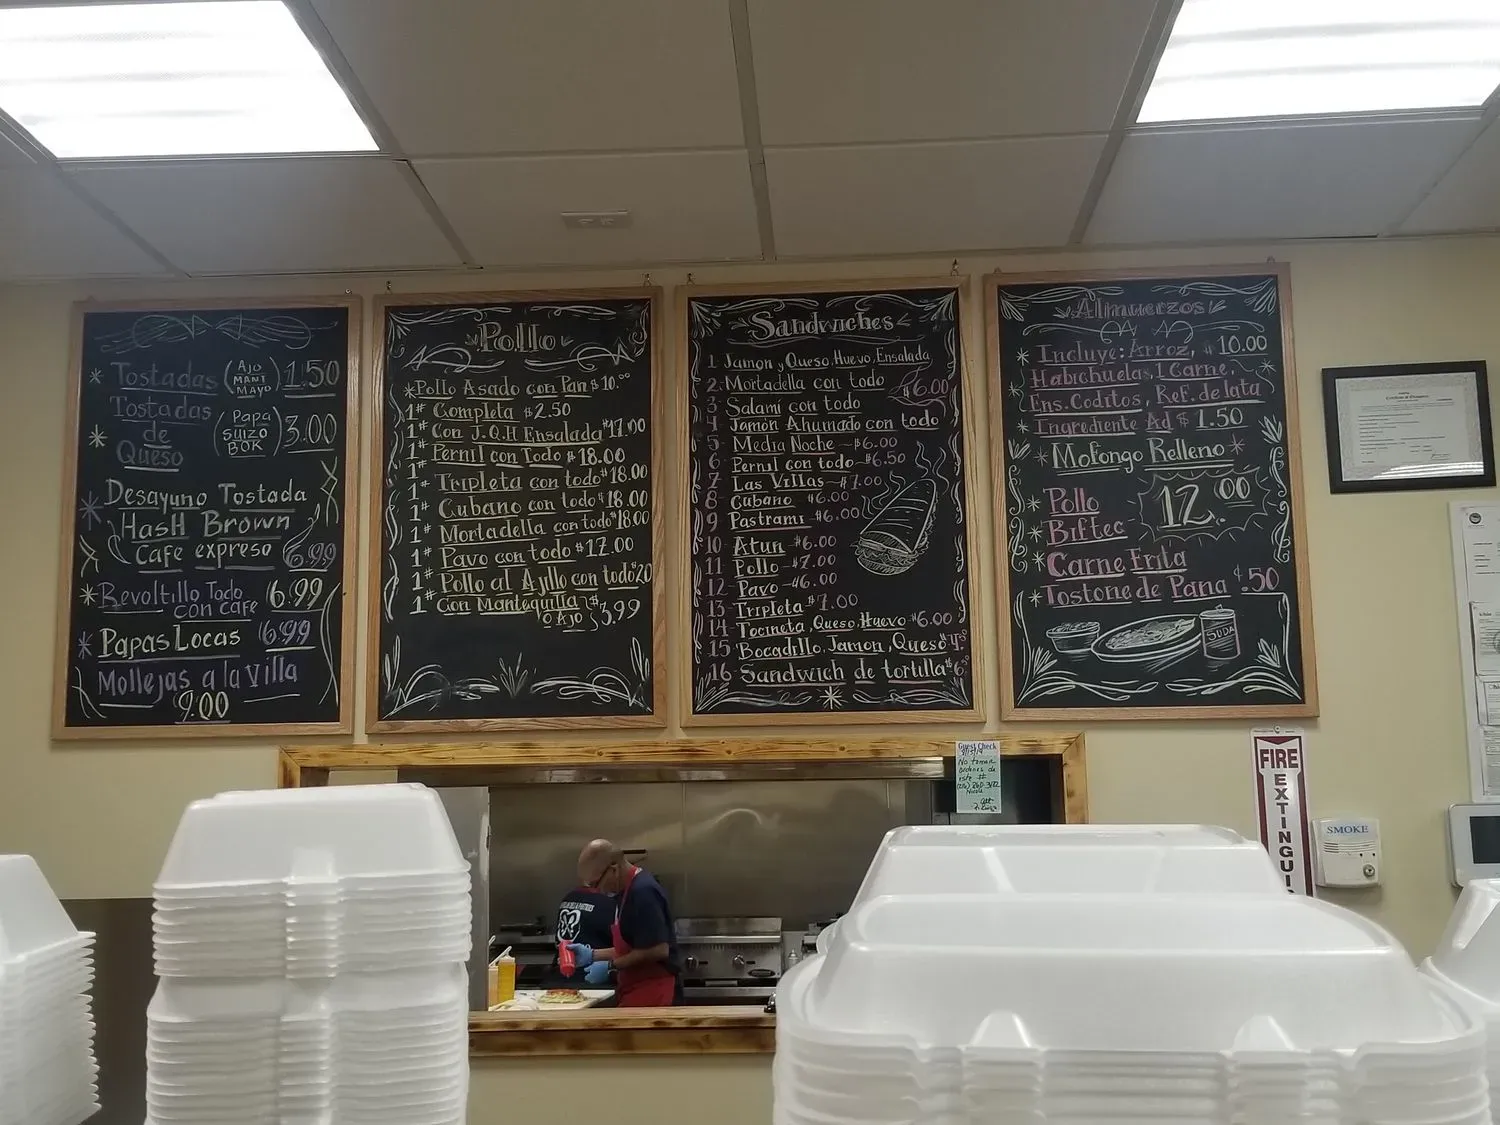 * Tostadas (Ajo Mant Mayo) 1.50
* Tostadas de Queso (Papa Suizo Bok) 3.00
* Desayuno Tostada
Hash Brown
Cafe expreso 6.99
* Revoltillo Todo con cafe 6.99
* Papas Locas 6.99
Mollejas a la Villa
9.00
Pollo
* Pollo Asado con Pan $10.00
1# Completa $2.50
1# Con J.Q.H Ensalada $17.00
1# Pernil con Todo $18.00
1# Tripleta con todo $18.00
1# Cubano con todo $18.00
1# Mortadella con todo $18.00
1# Pavo con todo $17.00
1# Pollo al Ajillo con todo $20
1# Con Mantequilla o Ajo $3.99
Sandwiches
1 Jamon y Queso, Huevo, Ensalada
2 Mortadella con todo $6.00
3 Salami con todo
4 Jamón Ahumado con todo
5 Media Noche $6.00
6 Pernil con todo $6.50
7 Las Villas $7.00
8 Cubano $6.00
9 Pastrami $6.00
10 Atun $6.00
11 Pollo $7.00
12 Pavo $6.00
13 Tripleta $7.00
14 Tocineta, Queso, Huevo $6.00
15 Bocadillo, Jamon, Queso
16 Sandwich de tortilla
Almuerzos
* Incluye: Arroz, $10.00
Habichuelas, 1 Carne,
Ens. Coditos, Ref. de lata
* Ingrediente Ad $1.50
* Mofongo Relleno *
* Pollo
Biftec
12.00
* Carne Frita
* Tostone de Pana $.50
SODA
Guest Check
No tomar
ordenes de
este #
Nicole
FIRE
EXTINGUI
SMOKE